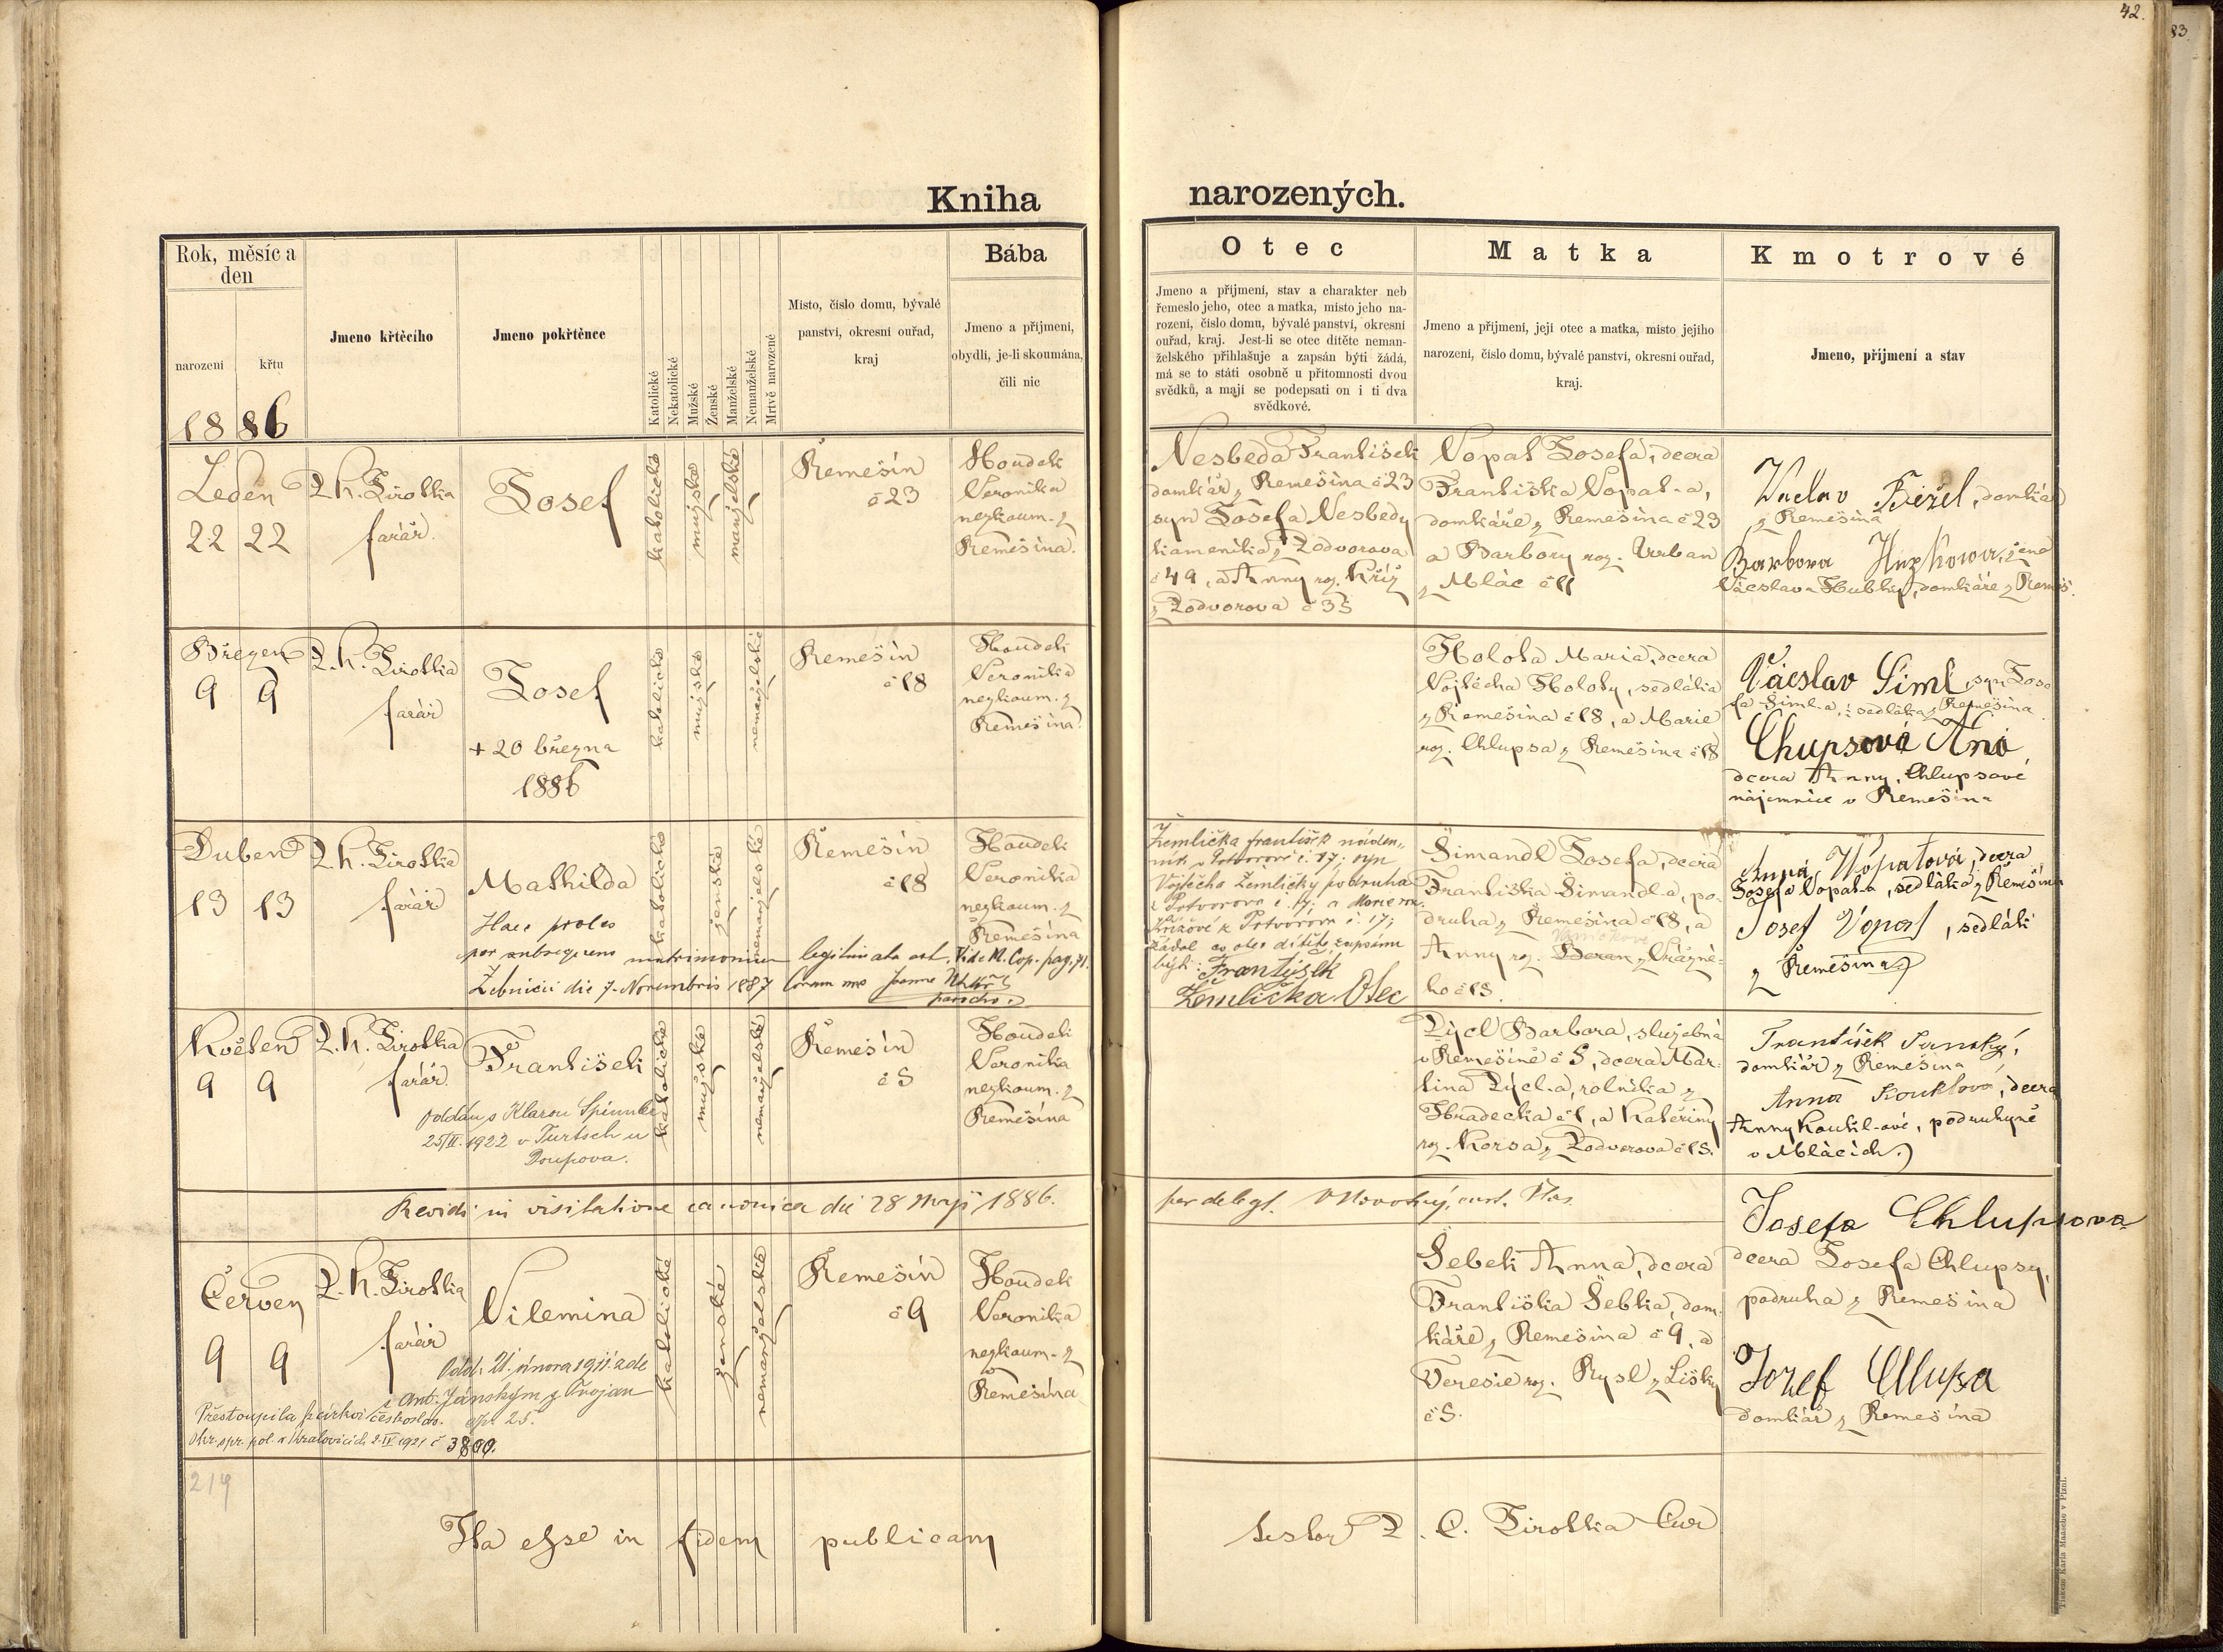 42.
83.
Kniha narozených.
Rok, měsíc a
den
narození
křtu
1886
Jmeno křtěcího
Jmeno pokřtěnce
Katolické
Nekatolické
Mužské
Ženské
Manželské
Nemanželské
Mrtvě narozené
Místo, číslo domu, bývalé
panství, okresní ouřad,
kraj
Bába
Jmeno a příjmení,
obydlí, je-li skoumána,
čili nic
Otec
Jmeno a příjmení, stav a charakter neb
řemeslo jeho, otec a matka, místo jeho na-
rození, číslo domu, bývalé panství, okresní
ouřad, kraj. Jest-li se otec dítěte neman-
želského přihlašuje a zapsán býti žádá,
má se to státi osobně u přítomnosti dvou
svědků, a mají se podepsati on i ti dva
svědkové.
Matka
Jmeno a příjmení, její otec a matka, místo jejího
narození, číslo domu, bývalé panství, okresní ouřad,
kraj.
Kmotrové
Jmeno, příjmení a stav
Leden
22 22
P. K. Jirotka
farář.
Josef
katolické
mužské
manželské
Řemešín
č 23
Houdek
Veronika
nezkoum. z
Řemešína.
Nesbeda František
domkář z Řemešína č 23
syn Josefa Nesbedy
kameníka z Podvorova
č 49, a Anny roz. Kříž
z Podvorova č 35
Vopat Josefa, dcera
Františka Vopat-a,
domkáře z Řemešína č 23
a Barbory roz. Urban
z Mlác č 11
Václav Bežel, domkář
z Řemešína
Barbora Hupkowa, žena
Václava Hubky, domkáře z Řemeš.
Březen
9 9
P. K. Jirotka
farář
Josef
+ 20 března
1886
katolické
mužské
nemanželské
Řemešín
č 18
Houdek
Veronika
nezkoum. z
Řemešína.
Holota Maria, dcera
Vojtěcha Holoty, sedláka
z Řemešína č 18, a Marie
roz. Chlupsa z Řemešína č 18
Václav Šiml, syn Jose
fa Šiml-a, sedláka z Řemešína
Chupsová Ana
dcera Anny Chlupsové
nájemnice v Řemešína
Duben
13 13
P. K. Jirotka
farář
Mathilda
Haec proles
per subsequens matrimonium legitimata est. Vide M. Cop. pag. 71.
Žebnicii die 7. Novembris 1887 Coram me
parocho.
katolické
ženské
nemanželské
Řemešín
č 18
Houdek
Veronika
nezkoum. z
Řemešína
Žemlička František náden-
ník v Potvorově č. 17; syn
Vojtěcha Žemličky podruha
z Potvorova č. 17; a Marie roz.
Křížové z Potvorova č. 17;
žádal co otec dítěte zapsánu
býti: František
Žemlička Otec
Šimandl Josefa, dcera
Františka Šimandl-a, po-
druha z Řemešína č 18, a
Anny roz. Beran z Vrážné-
ho č 18.
Anna Wopatová, dcera
Josefa Vopat-a, sedláka z Řemešína
Josef Vopat, sedlák
z Řemešína
Květen
9 9
P. K. Jirotka
farář.
František
oddán s Klarou
1922 v Turtsch u
Doupova.
katolické
mužské
nemanželské
Řemešín
č 5
Houdek
Veronika
nezkoum. z
Řemešína
Pýcl Barbora, služebná
v Řemešíně č 5, dcera Mar-
tina Pýcl-a, rolníka z
Hradecka č 1, a Kateřiny
roz. Korsa z Podvorova č 15.
František Janský,
domkář z Řemešína
Anna Kouklova, dcera
Anny Koukl-ové, podruhyně
v Mlácích.
Revidi in visitatione canonica die 28 Maji 1886.
per delegt. Novotný,
Červen
9 9
P. K. Jirotka
farář
Vilemina
Odd. 21. února 1911 zde
s Ant. Jánským z Trojan
čp. 25.
Přestoupila k církvi českoslov.
Okr. spr. pol. v Kralovicích 2.IV 1921 č 3800.
katolické
ženské
nemanželské
Řemešín
č 9
Houdek
Veronika
nezkoum. z
Řemešína
Šebek Anna, dcera
Františka Šebka, dom-
káře z Řemešína č 9, a
Teresie roz. Rysl z Lišky
č 5.
Josefa Chlupsova
dcera Josefa Chlupsy,
podruha z Řemešína
Jozef Chlupsa
domkář z Řemešína
214
Ita esse in fidem publicam testor P. C. Jirotka Cur
Tiskem Karla Maasche v Plzni.